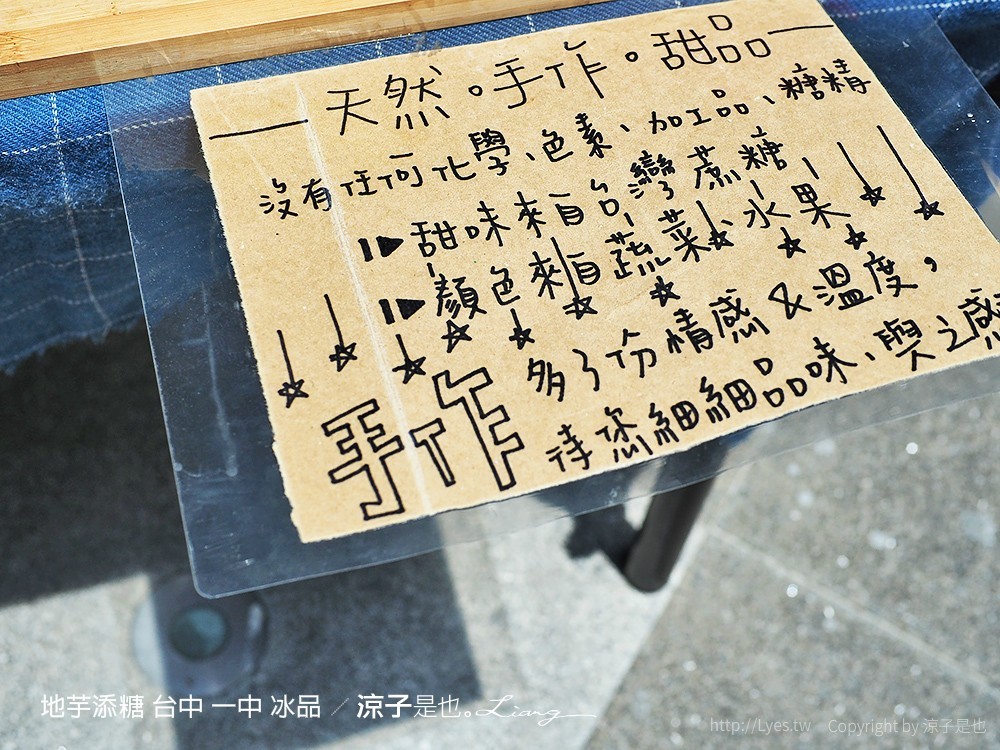 天然。手作。甜品
沒有任何化學、色素、加工品、糖精
甜味來自台灣蔗糖
顏色來自蔬菜、水果
手作
多了份情感&溫度,
待您細細品味、與之感
地芋添糖 台中 一中 冰品 / 涼子是也。Liang
http://Lyes.tw Copyright by 涼子是也